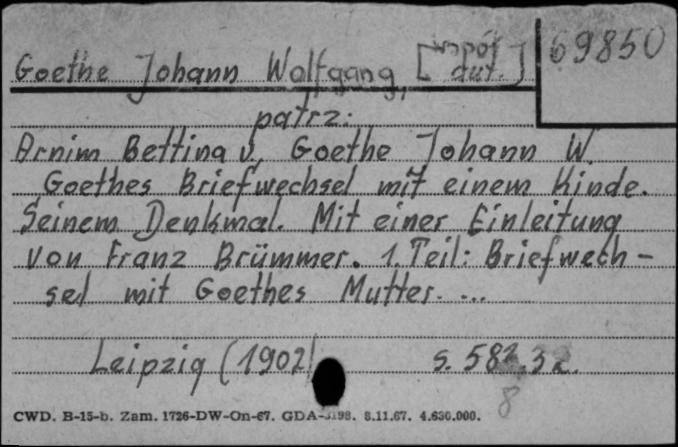 Goethe Johann Wolfgang, [współ aut.] 69850
patrz:
Arnim Bettina v., Goethe Johann W.
Goethes Briefwechsel mit einem Kinde.
Seinem Denkmal. Mit einer Einleitung
von Franz Brümmer. 1. Teil: Briefwech-
sel mit Goethes Mutter. ...
Leipzig (1902) s. 582.
8
CWD. B-15-b. Zam. 1726-DW-On-67. GDA-3198. 8.11.67. 4.630.000.